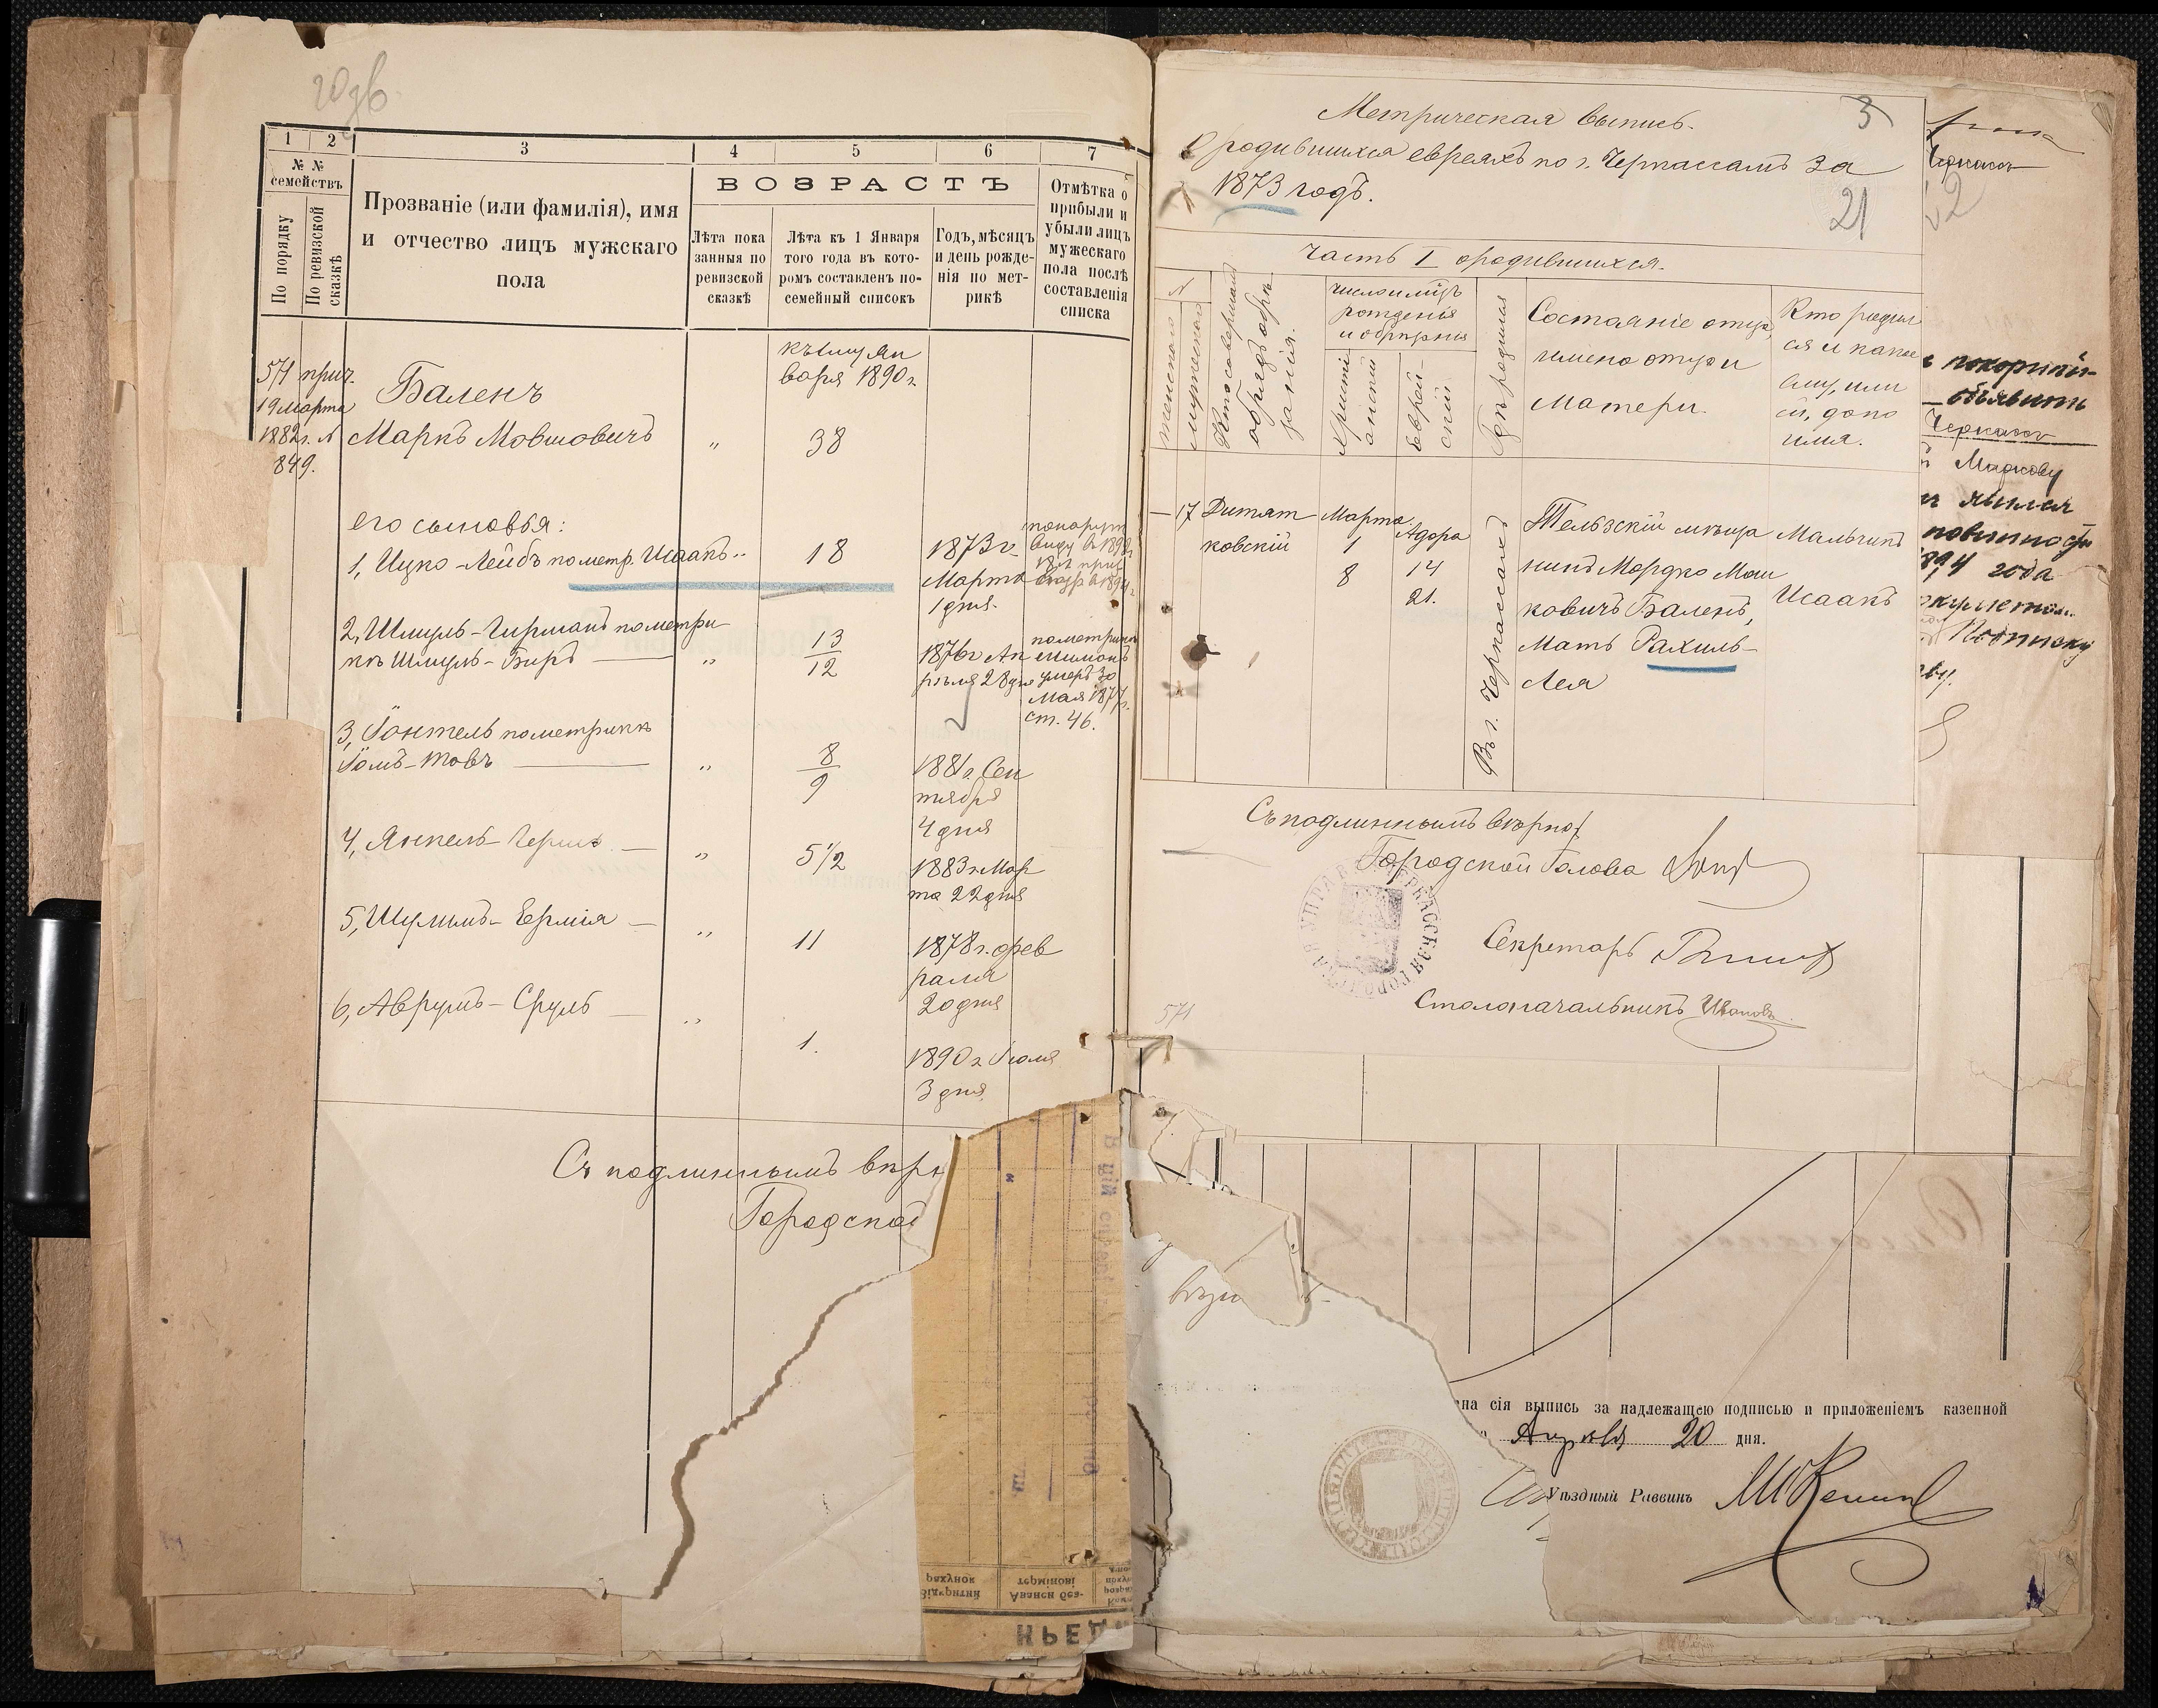 1
2
3
4
5
6
7
№ №
семействъ
По порядку
По ревизской
сказкѣ
Прозваніе (или фамилія), имя
и отчество лицъ мужскаго
пола
ВОЗРАСТЪ
Лѣта пока
занныя по
ревизской
сказкѣ
Лѣта къ 1 Января
того года въ кото-
ромъ составленъ по-
семейный списокъ
Годъ, мѣсяцъ
и день рожде-
нія по мет-
рикѣ
Отмѣтка о
прибыли и
убыли лицъ
мужескаго
пола послѣ
составленія
списка
571 прич.
19 марта
1882 г. №
849.
Баленъ
Маркъ Мовшовичъ
„
къ 1му Ян
варя 1890 г.
38
его сыновья:
1, Ицко-Лейбъ по метр. Исаакъ
18
1873 г.
Марта
1 дня.
2, Шмуль-Гиршанъ по метри
кѣ Шмуль-Биръ
„
13
12
1876 г. Ап
рѣля 28 дня
умеръ 30
Мая 1877 г.
ст. 46.
3, Іонтель по метрикѣ
Іомъ-Товъ
„
8
9
1881 г. Сен
тября
4 дня
4, Янкель-
„
5 1/2
1883 г. Мар
та 22 дня
5, Шулимъ-Ермія
„
11
1878 г. фев
раля
20 дня
6, Аврумъ-Сруль
„
1.
1890 г. Іюля
3 дня
Съ подлиннымъ вѣрн
Городской
Метрическая выпись.
О родившихся евреяхъ по г. Черкассамъ за
1873 годъ.
3
21
Часть I о родившихся.
№
женскаго
мужескаго
Кто совершалъ
обрядъ обрѣ
занія.
Число и мѣсяцъ
рожденія
и обрѣзанія
Христі
анскій
Еврей-
скій
Гдѣ родился
Состояніе отца,
имена отца и
Матери.
Кто родил
ся и какое
ему, или
ей, дано
имя.
17
Дитят
ковскій
Марта
1
8
Адора
14
21.
Въ г. Черкассахъ
Тельзскій мѣща
нинъ Мордко Мош
ковичъ Баленъ,
Мать Рахиль-
Лея
Мальчикъ
Исаакъ
Съ подлиннымъ вѣрно:
Городской Голова
Секретарь
Столоначальникъ Ивановъ
571
Черкасск
покорнѣй-
объявить
Черкасск
Маркову
явился
повинности
1894 года
Подписку
на сія выпись за надлежащею подписью и приложеніемъ казенной
Апрѣля 20 дня.
Уѣздный Раввинъ
рахунок
відкритий
термінові
Аванси без-
КРЕД